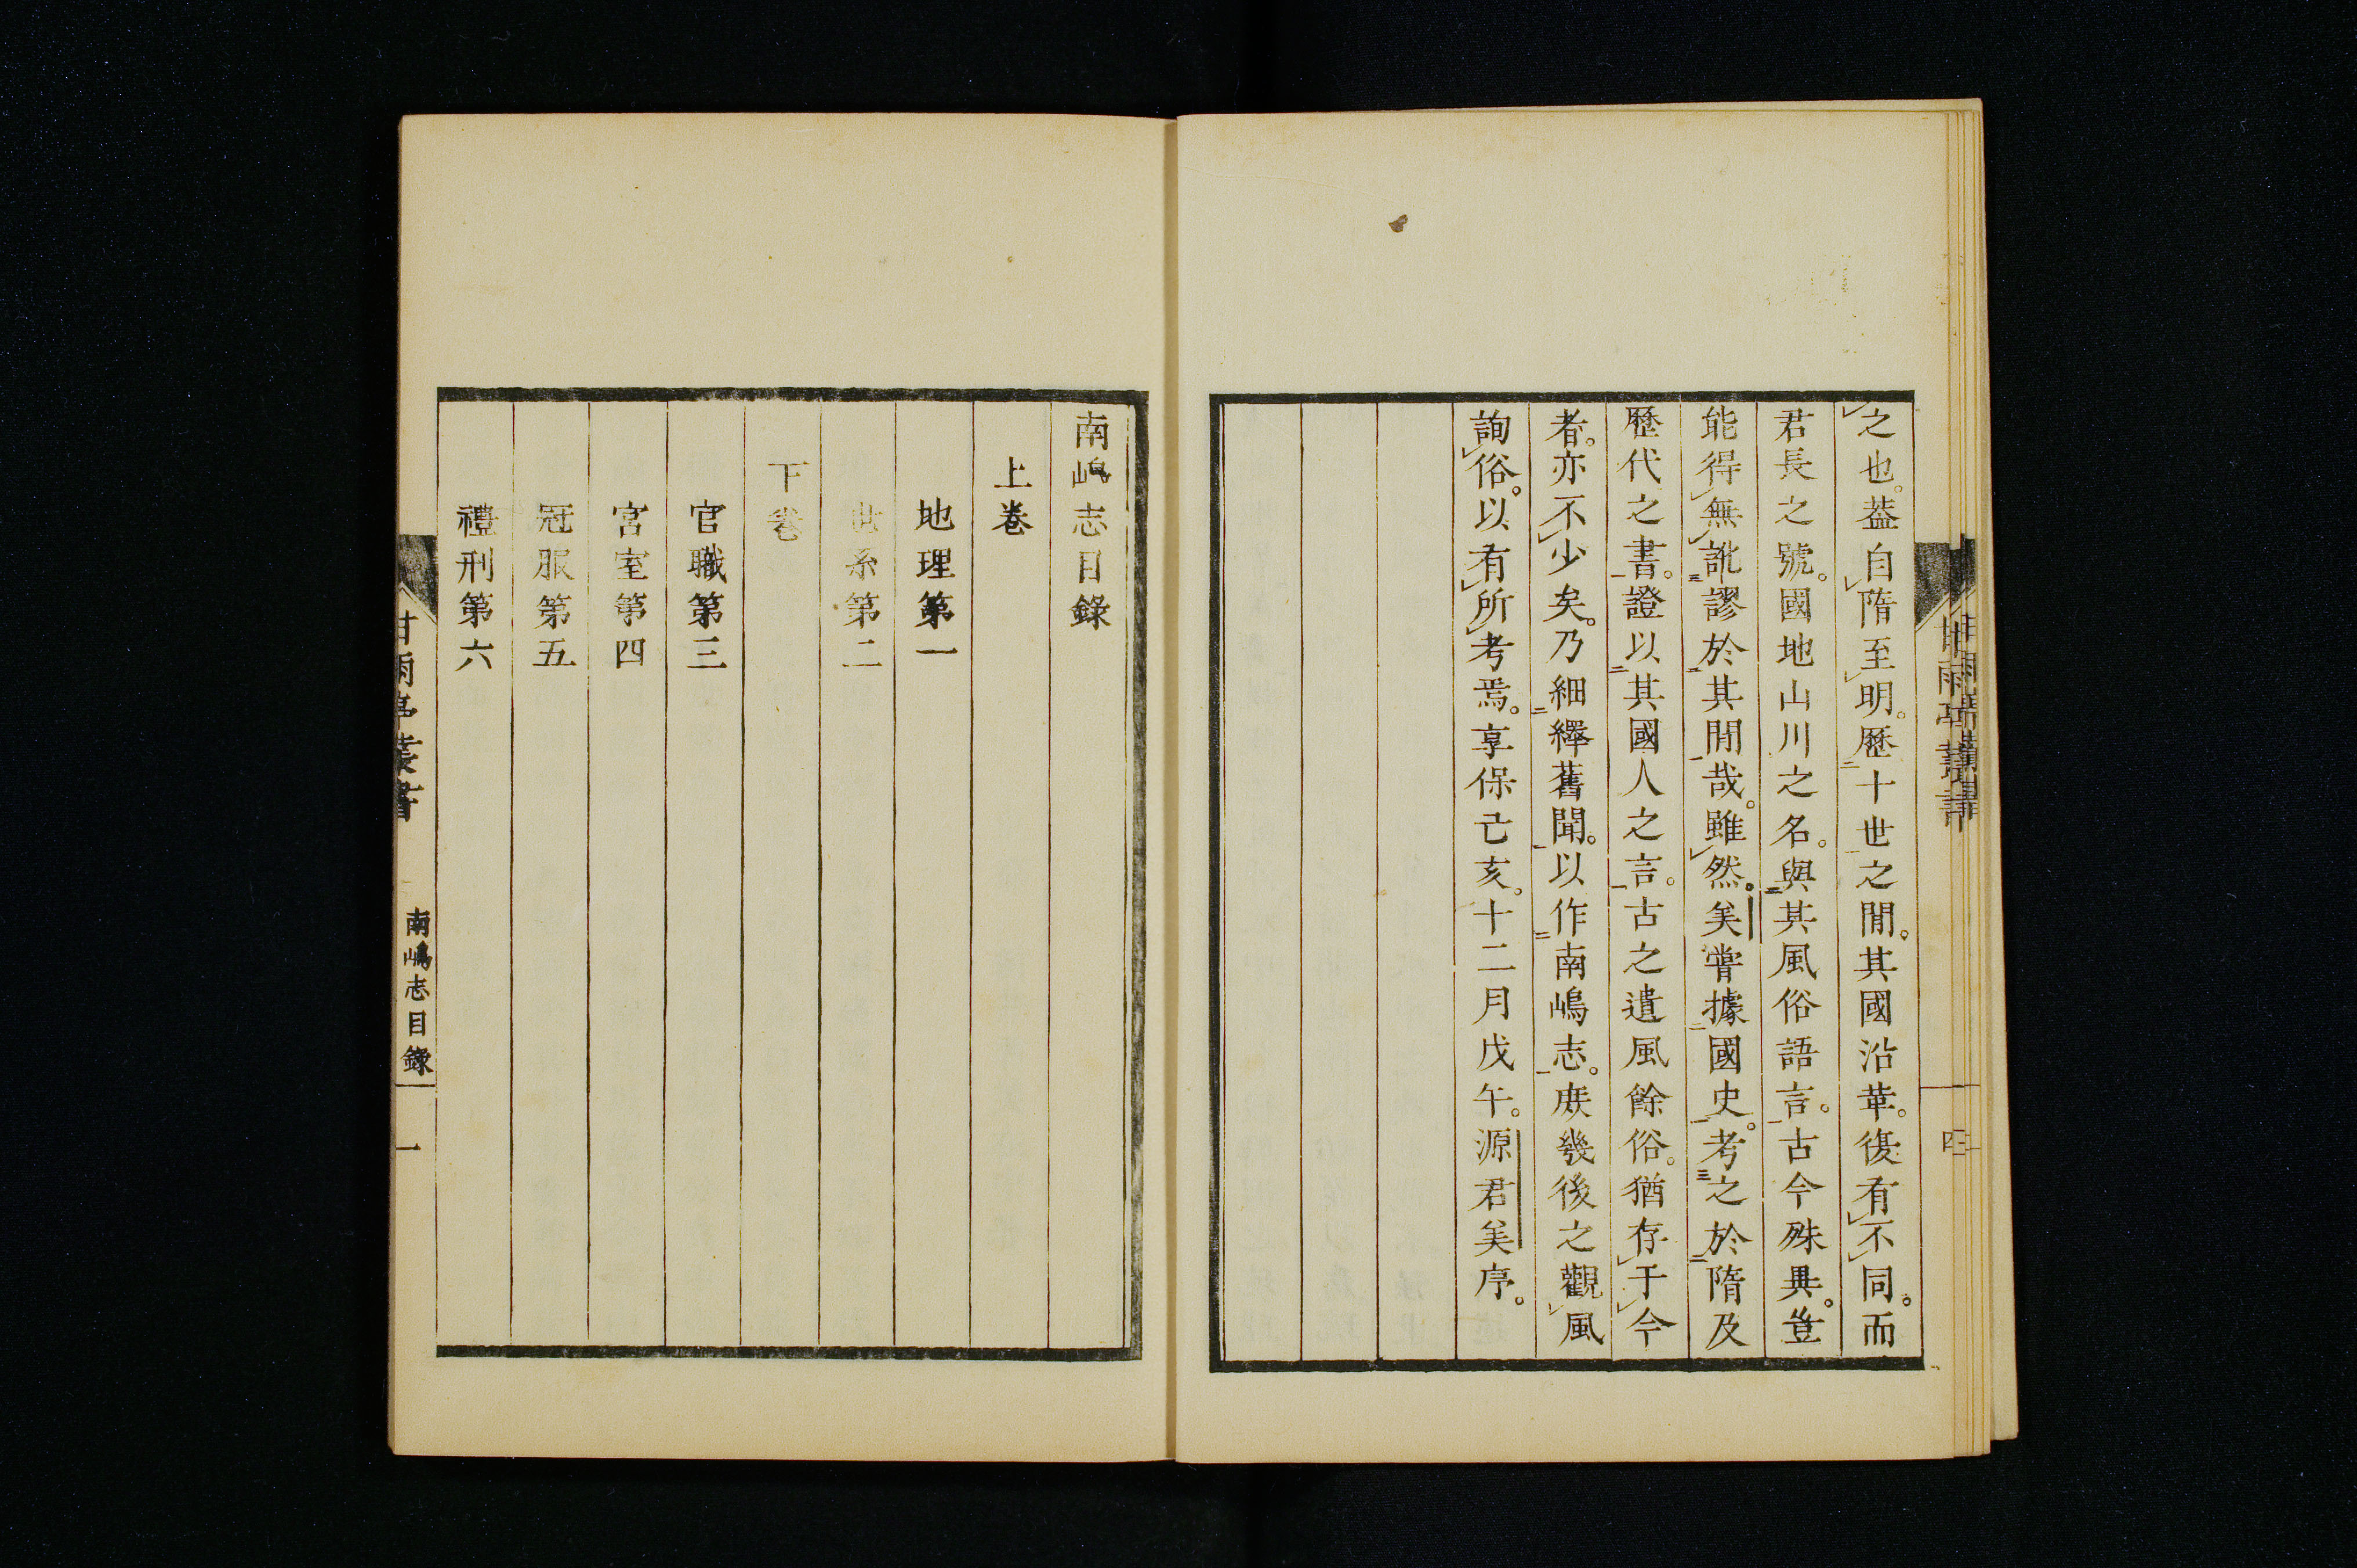 之也。葢自隋至明。歷十世之間。其國沿革。復有不同。而
君長之號。國地山川之名。與其風俗語言。古今殊異。豈
能得無訛謬於其間哉。雖然。美嘗據國史。考之於隋及
歷代之書。證以其國人之言。古之遺風餘俗。猶存于今
者。亦不少矣。乃細繹舊聞。以作南嶋志。庶幾後之觀風
詢俗。以有所考焉。享保己亥。十二月戊午。源君美序。
四
南嶋志目錄
上卷
地理第一
世系第二
下卷
官職第三
宮室第四
冠服第五
禮刑第六
甘雨亭叢書
南嶋志目錄
一